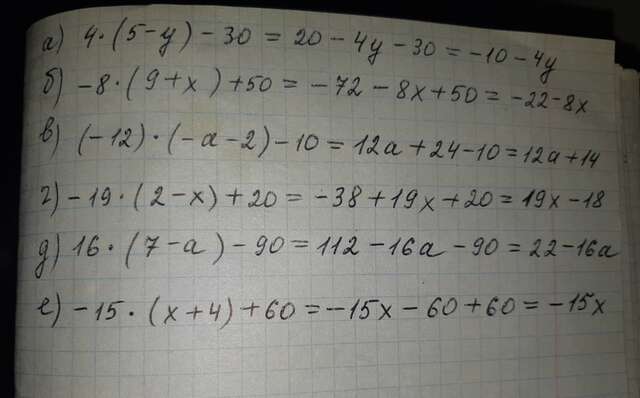 а) 4·(5-y)-30 = 20-4y-30 = -10-4y
б) -8·(9+x)+50 = -72-8x+50 = -22-8x
в) (-12)·(-a-2)-10 = 12a+24-10 = 12a+14
г) -19·(2-x)+20 = -38+19x+20 = 19x-18
д) 16·(7-a)-90 = 112-16a-90 = 22-16a
е) -15·(x+4)+60 = -15x-60+60 = -15x